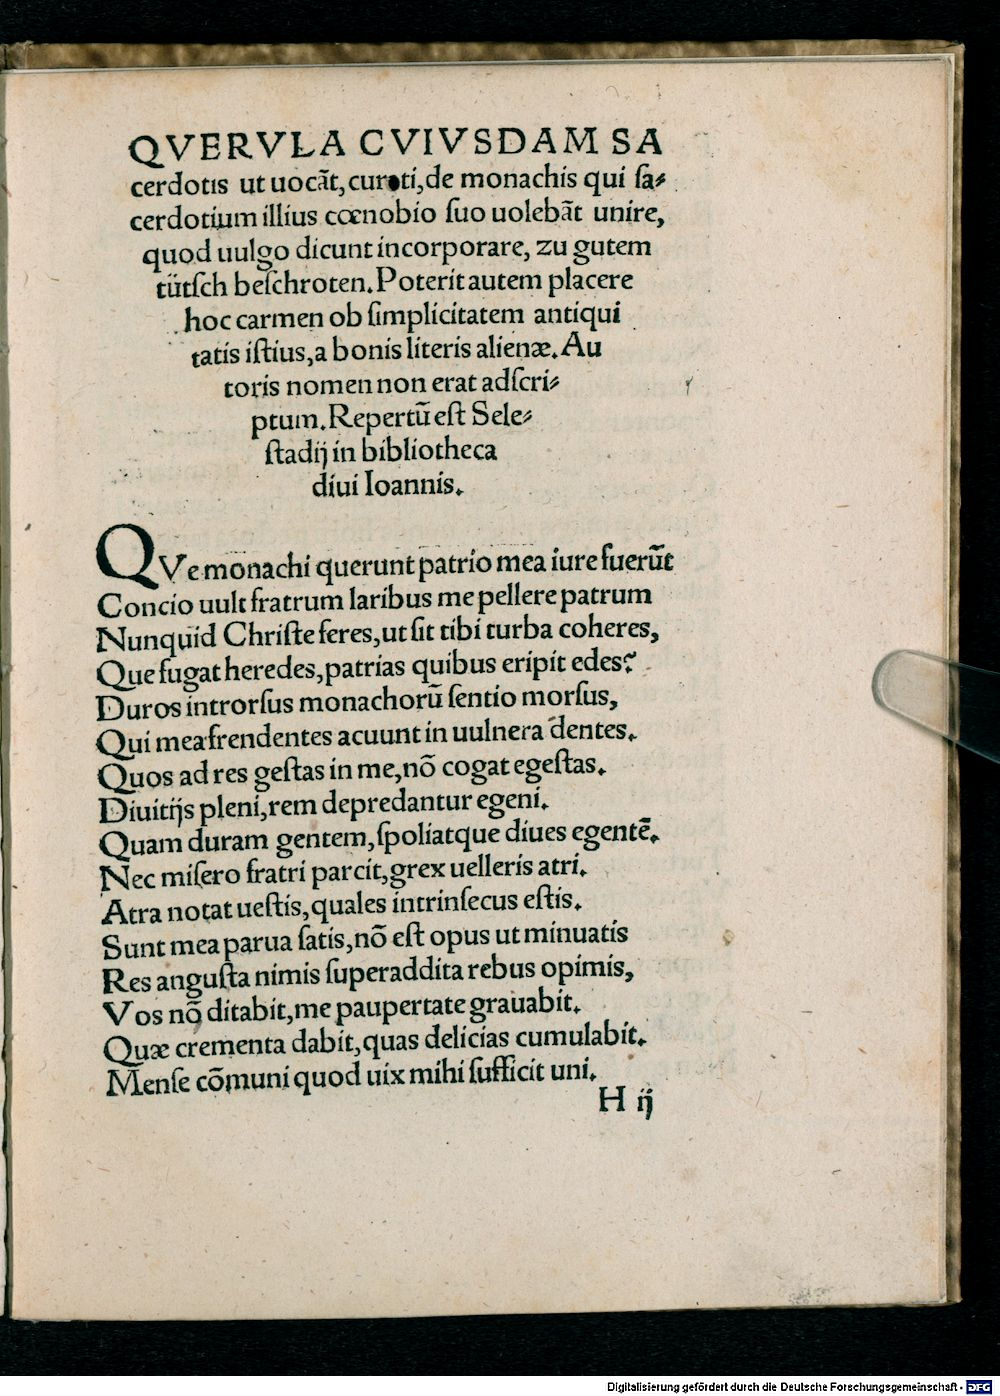 QVERVLA CVIVSDAM SA
cerdotis ut uocãt, curati, de monachis qui ſa⸗
cerdotium illius cœnobio ſuo uolebãt unire,
quod uulgo dicunt incorporare, zu gutem
tütſch beſchroten. Poterit autem placere
hoc carmen ob ſimplicitatem antiqui
tatis iſtius, a bonis literis alienæ. Au
toris nomen non erat adſcri⸗
ptum. Repertũ eſt Sele⸗
ſtadij in bibliotheca
diui Ioannis.
QVe monachi querunt patrio mea iure fuerũt
Concio uult fratrum laribus me pellere patrum
Nunquid Chriſte feres, ut ſit tibi turba coheres,
Que fugat heredes, patrias quibus eripit edes?
Duros introrſus monachorũ ſentio morſus,
Qui mea frendentes acuunt in uulnera dentes.
Quos ad res geſtas in me, nõ cogat egeſtas.
Diuitijs pleni, rem depredantur egeni.
Quam duram gentem, ſpoliatque diues egentẽ.
Nec miſero fratri parcit, grex uelleris atri.
Atra notat ueſtis, quales intrinſecus eſtis.
Sunt mea parua ſatis, nõ eſt opus ut minuatis
Res anguſta nimis ſuperaddita rebus opimis,
Vos nõ ditabit, me paupertate grauabit.
Quæ crementa dabit, quas delicias cumulabit.
Menſe cõmuni quod uix mihi ſufficit uni.
H ij
Digitalisierung gefördert durch die Deutsche Forschungsgemeinschaft - DFG